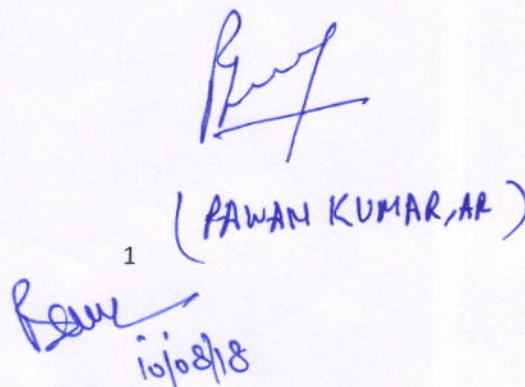 (PAWAN KUMAR, AR)
1
10/08/18